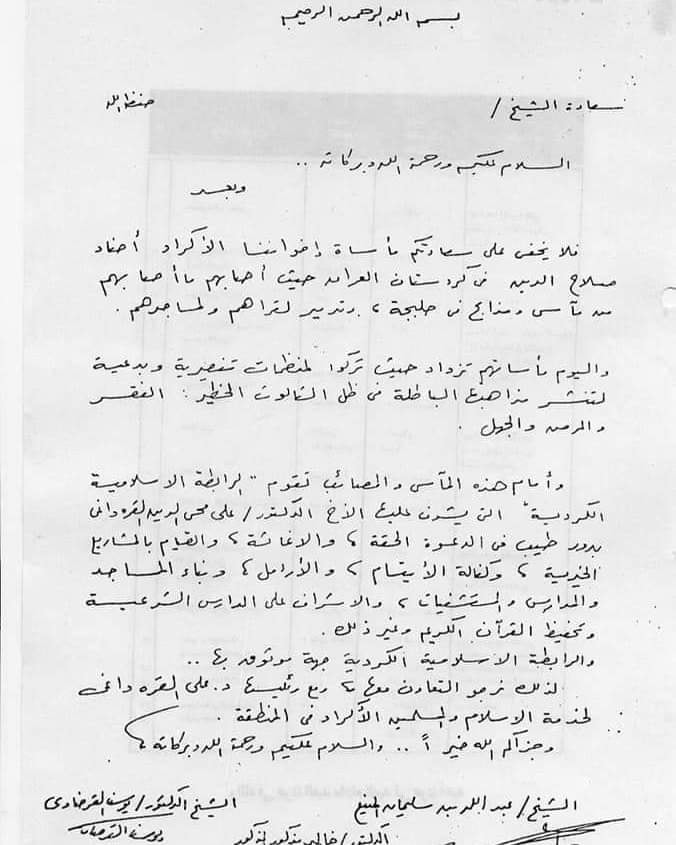 بسم الله الرحمن الرحيم
سعادة الشيخ / حفظه الله
السلام عليكم ورحمة الله وبركاته ..
وبعد
فلا يخفى على سعادتكم مأساة إخواننا الأكراد أحفاد
صلاح الدين في كردستان العراق حيث أصابهم ما أصابهم
من مآسى ومذابح في حلبجة ، وتدمير لقراهم ولمساجدهم .
واليوم مأساتهم تزداد حيث تركوا لمنظمات تنصيرية وبدعية
لتنشر مذاهبها الباطلة في ظل الثالوث الخطير : الفقر
والمرض والجهل .
وأمام هذه المآسى والمصائب تقوم " الرابطة الاسلامية
الكردية " التي يشرف عليها الأخ الدكتور / على محى الدين القره داغى
بدور طيب في الدعوة الحقة ، والاغاثة ، والقيام بالمشاريع
الخيرية ، وكفالة الأيتام ، والأرامل ، وبناء المساجد
والمدارس والمستشفيات ، والاشراف على المدارس الشرعية
وتحفيظ القرآن الكريم وغير ذلك .
والرابطة الاسلامية الكردية جهة موثوق بها ..
لذلك نرجو التعاون معها ، ومع رئيسها د. على القره داغى
لخدمة الاسلام والمسلمين الأكراد في المنطقة .
وجزاكم الله خيراً .. والسلام عليكم ورحمة الله وبركاته ،
الشيخ / عبد الله بن سليمان المنيع الشيخ الدكتور / يوسف القرضاوى
يوسف القرضاوى
الدكتور / خالد مذكور المذكور